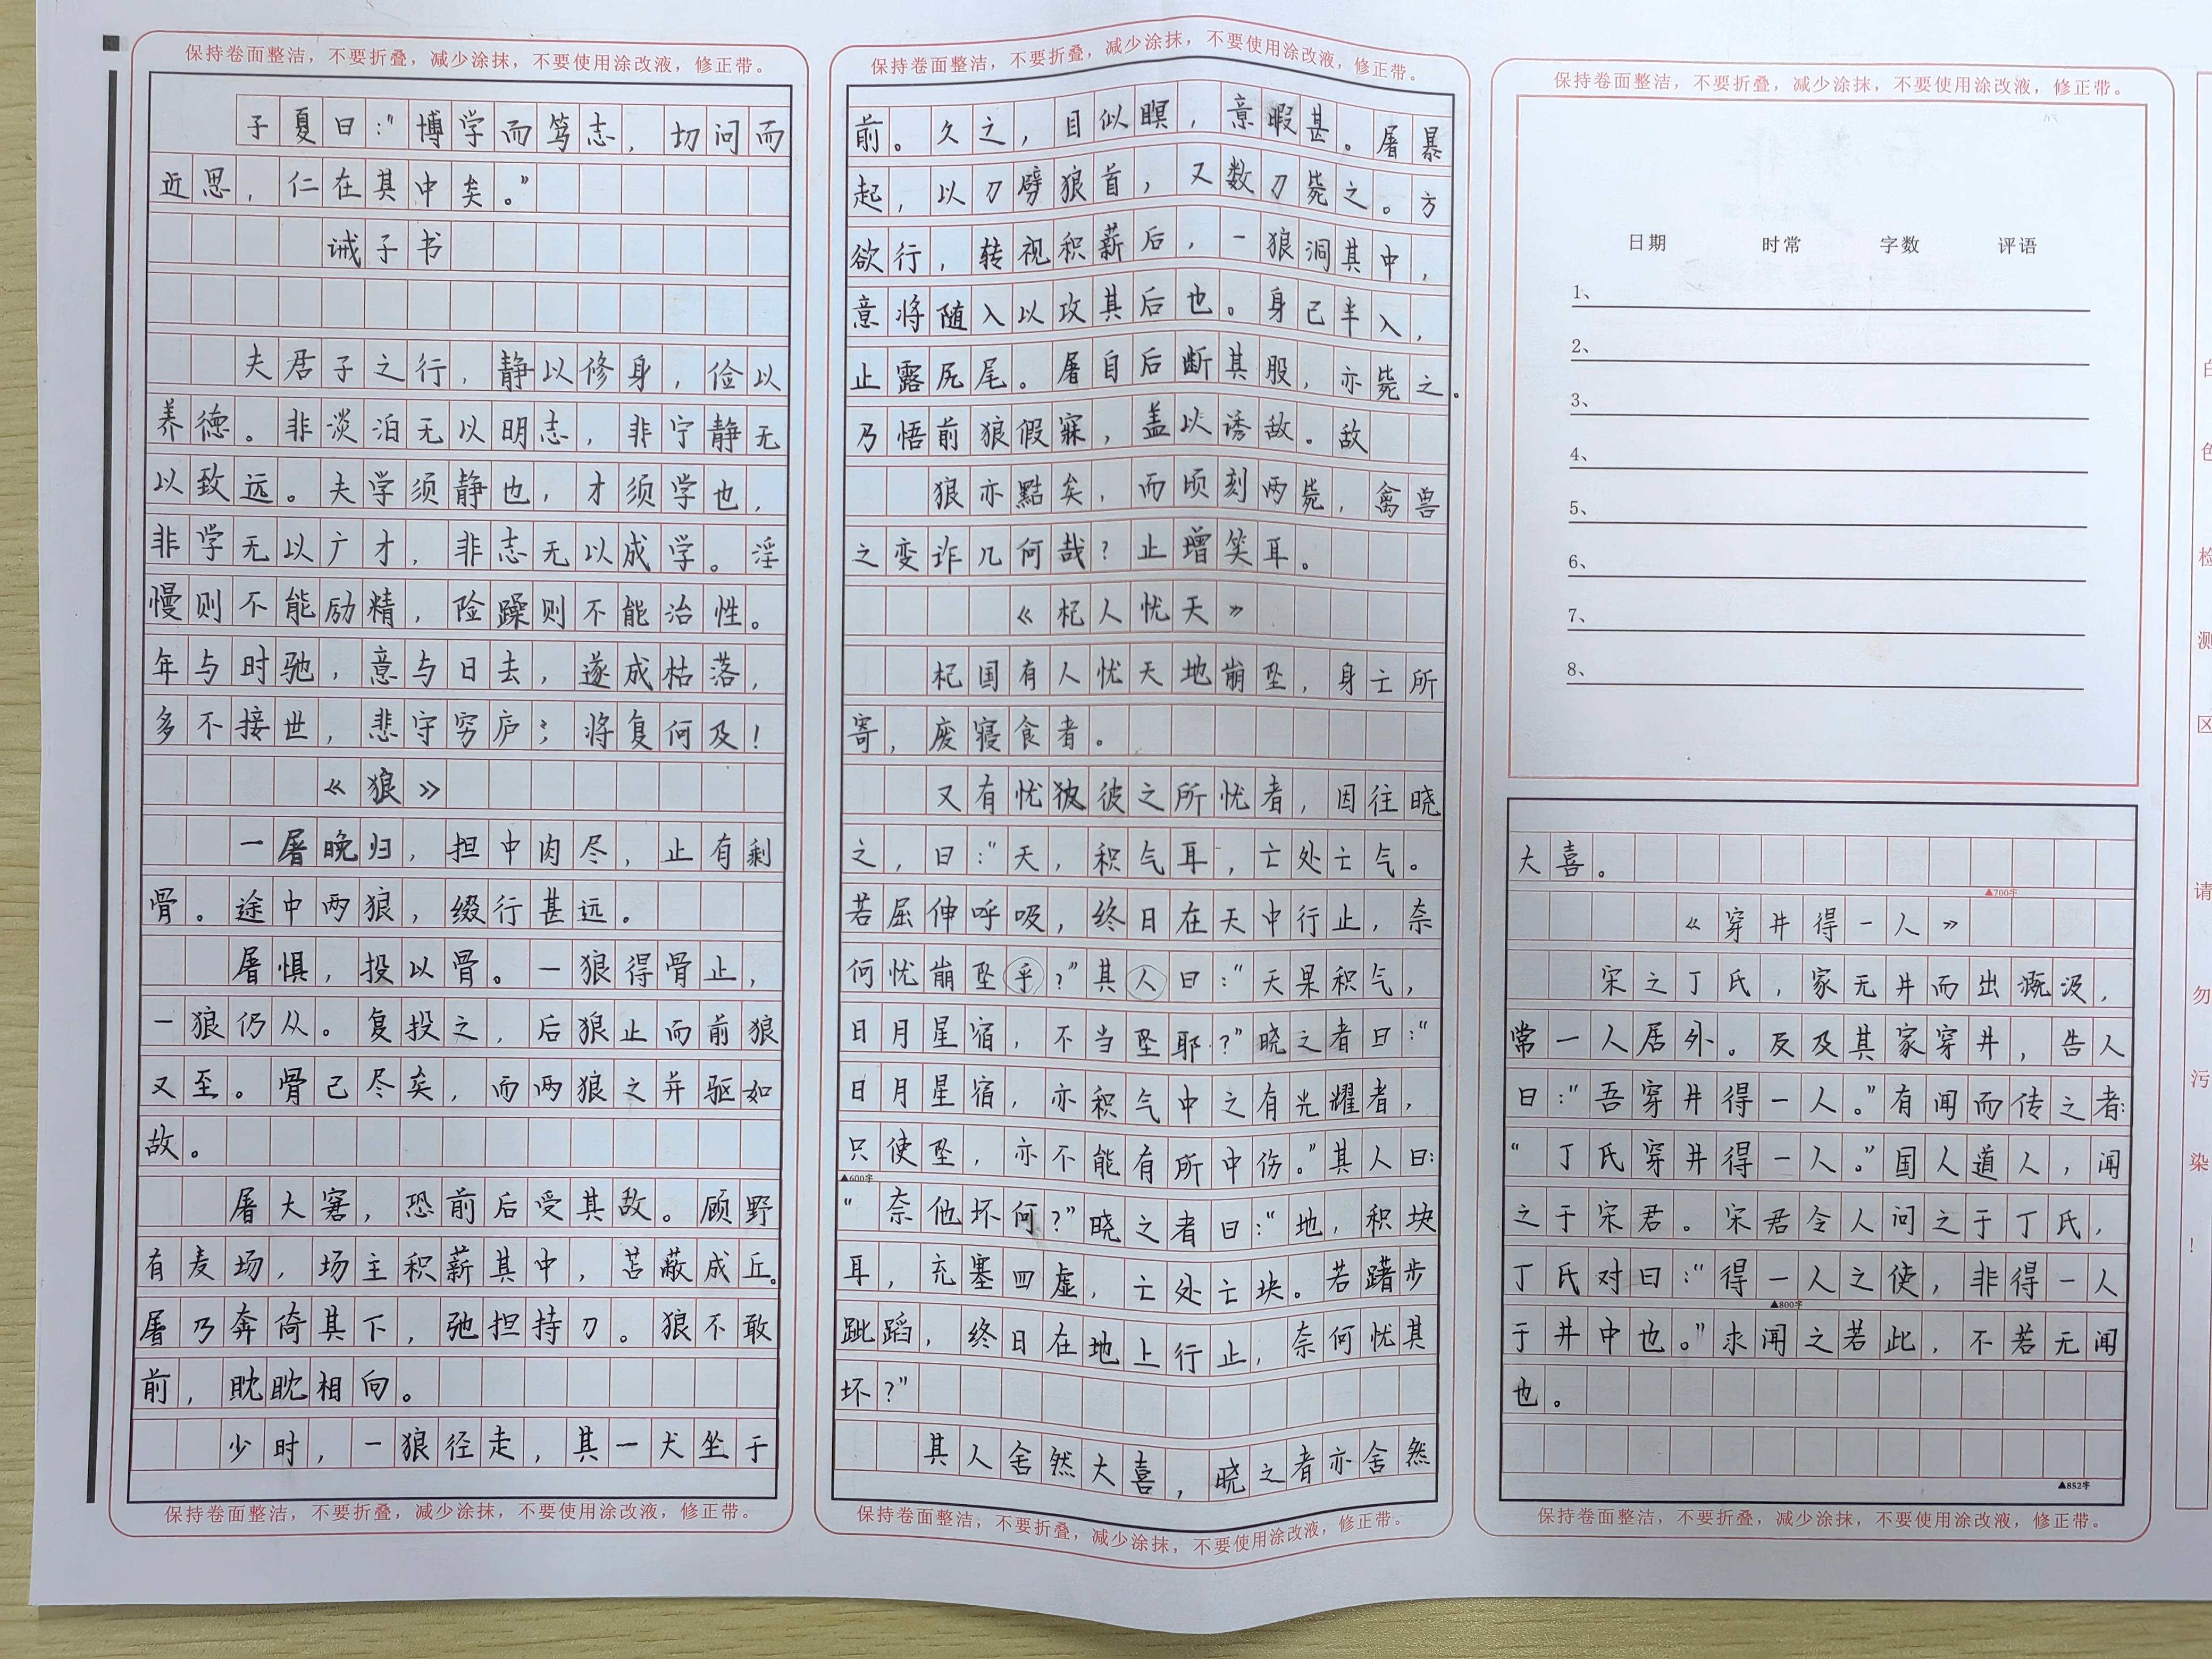 保持卷面整洁，不要折叠，减少涂抹，不要使用涂改液，修正带。
子夏曰：“博学而笃志，切问而
近思，仁在其中矣。”
诫子书
夫居子之行，静以修身，俭以
养德。非淡泊无以明志，非宁静无
以致远。夫学须静也，才须学也，
非学无以广才，非志无以成学。淫
慢则不能励精，险躁则不能治性。
年与时驰，意与日去，遂成枯落，
多不接世，悲守穷庐；将复何及！
《狼》
一屠晚归，担中肉尽，止有剩
骨。途中两狼，缀行甚远。
屠惧，投以骨。一狼得骨止，
一狼仍从。复投之，后狼止而前狼
又至。骨已尽矣，而两狼之并驱如
故。
屠大窘，恐前后受其敌。顾野
有麦场，场主积薪其中，苫蔽成丘。
屠乃奔倚其下，弛担持刀。狼不敢
前，眈眈相向。
少时，一狼径走，其一犬坐于
保持卷面整洁，不要折叠，减少涂抹，不要使用涂改液，修正带。
保持卷面整洁，不要折叠，减少涂抹，不要使用涂改液，修正带。
前。久之，目似瞑，意暇甚。屠暴
起，以刀劈狼首，又数刀毙之。方
欲行，转视积薪后，一狼洞其中，
意将随入以攻其后也。身已半入，
止露尻尾。屠自后断其股，亦毙之。
乃悟前狼假寐，盖以诱敌。敌
狼亦黠矣，而顷刻两毙，禽兽
之变诈几何哉？止增笑耳。
《杞人忧天》
杞国有人忧天地崩坠，身亡所
寄，废寝食者。
又有忧彼彼之所忧者，因往晓
之，曰：“天，积气耳，亡处亡气。
若屈伸呼吸，终日在天中行止，奈
何忧崩坠乎？”其人曰：“天果积气，
日月星宿，不当坠耶？”晓之者曰：“
日月星宿，亦积气中之有光耀者，
只使坠，亦不能有所中伤。”其人曰：
▲600字
“奈他坏何？”晓之者曰：“地，积块
耳，充塞四虚，亡处亡块。若躇步
跐蹈，终日在地上行止，奈何忧其
坏？”
其人舍然大喜，晓之者亦舍然
保持卷面整洁，不要折叠，减少涂抹，不要使用涂改液，修正带。
保持卷面整洁，不要折叠，减少涂抹，不要使用涂改液，修正带。
日期 时常 字数 评语
1、
2、
3、
4、
5、
6、
7、
8、
大喜。
▲700字
《穿井得一人》
宋之丁氏，家无井而出溉汲，
常一人居外。及及其家穿井，告人
曰：“吾穿井得一人。”有闻而传之者：
“丁氏穿井得一人。”国人道人，闻
之于宋君。宋君令人问之于丁氏，
丁氏对曰：“得一人之使，非得一人
▲800字
于井中也。”求闻之若此，不若无闻
也。
▲852字
保持卷面整洁，不要折叠，减少涂抹，不要使用涂改液，修正带。
白色检测区请勿污染！